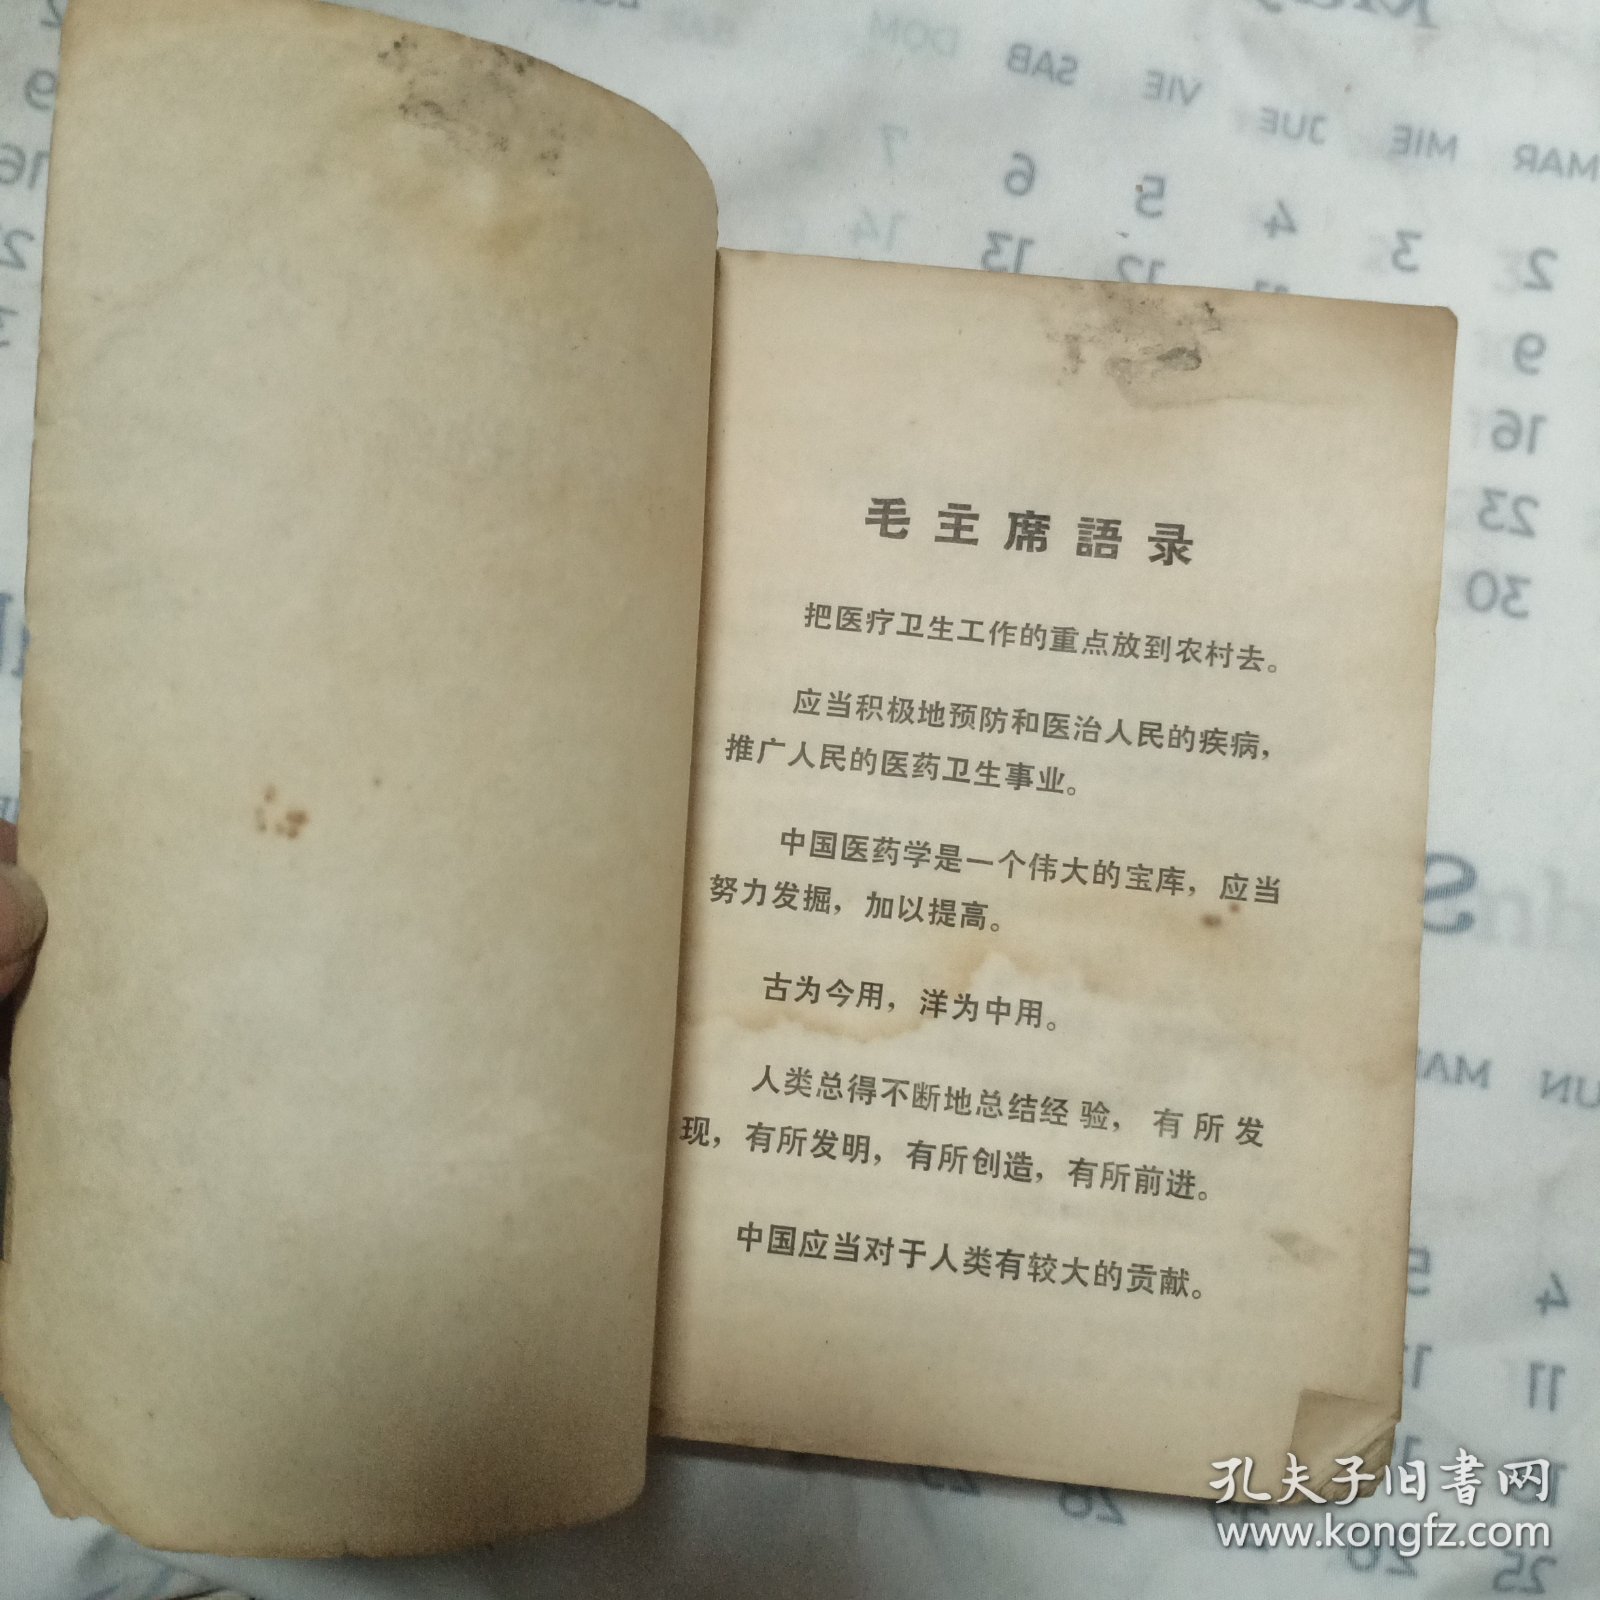 毛主席語录
把医疗卫生工作的重点放到农村去。
应当积极地预防和医治人民的疾病，
推广人民的医药卫生事业。
中国医药学是一个伟大的宝库，应当
努力发掘，加以提高。
古为今用，洋为中用。
人类总得不断地总结经验，有所发
现，有所发明，有所创造，有所前进。
中国应当对于人类有较大的贡献。
孔夫子旧书网
www.kongfz.com
DOM
SAB
VIE
JUE
MIE
MAR
7
6
5
4
3
2
14
13
12
9
16
23
30